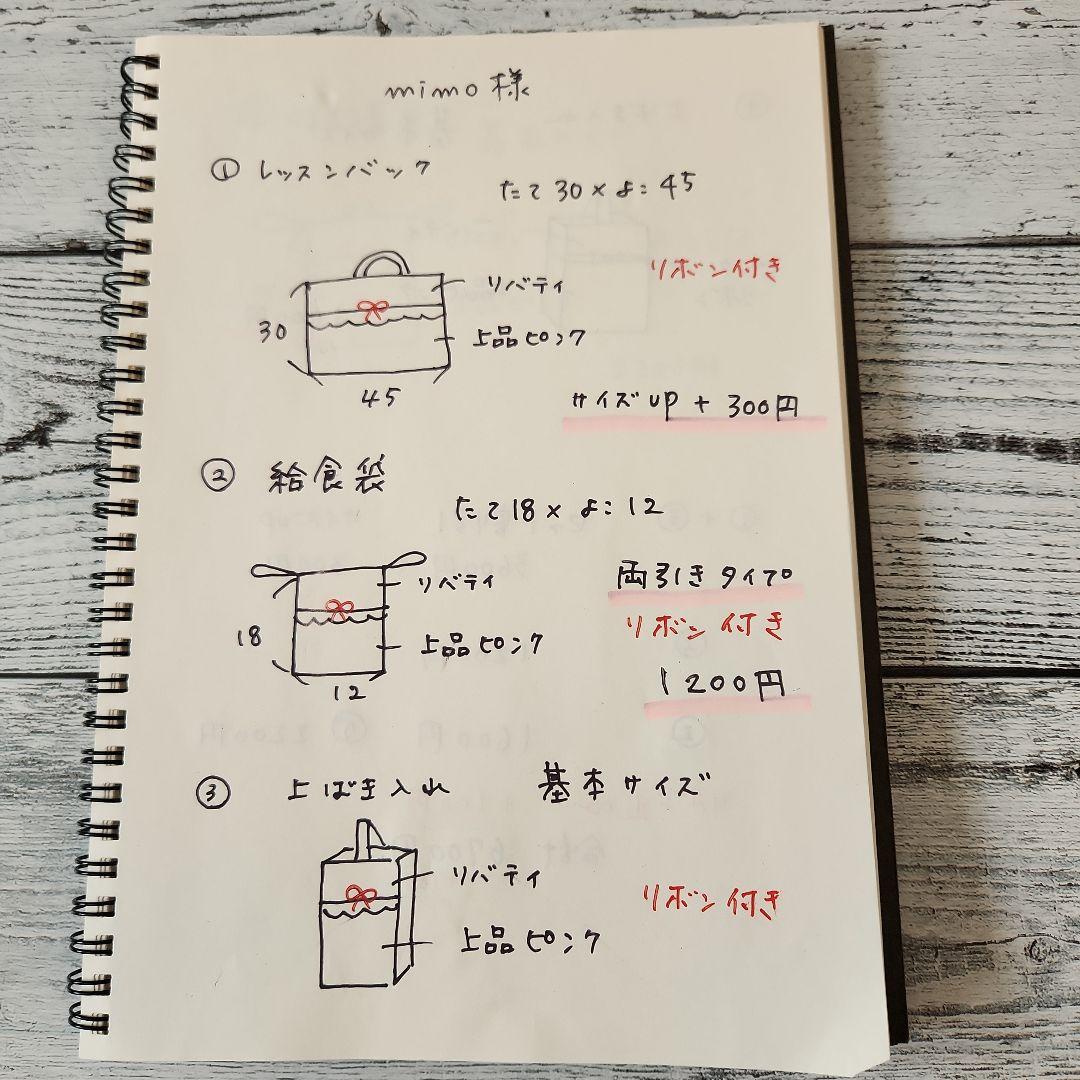 mimo様
① レッスンバック
たて30×よこ45
リボン付き
リバティ
上品ピンク
30
45
サイズup + 300円
② 給食袋
たて18×よこ12
リバティ
両引きタイプ
リボン付き
上品ピンク
18
12
1200円
③ 上ばき入れ 基本サイズ
リバティ
リボン付き
上品ピンク